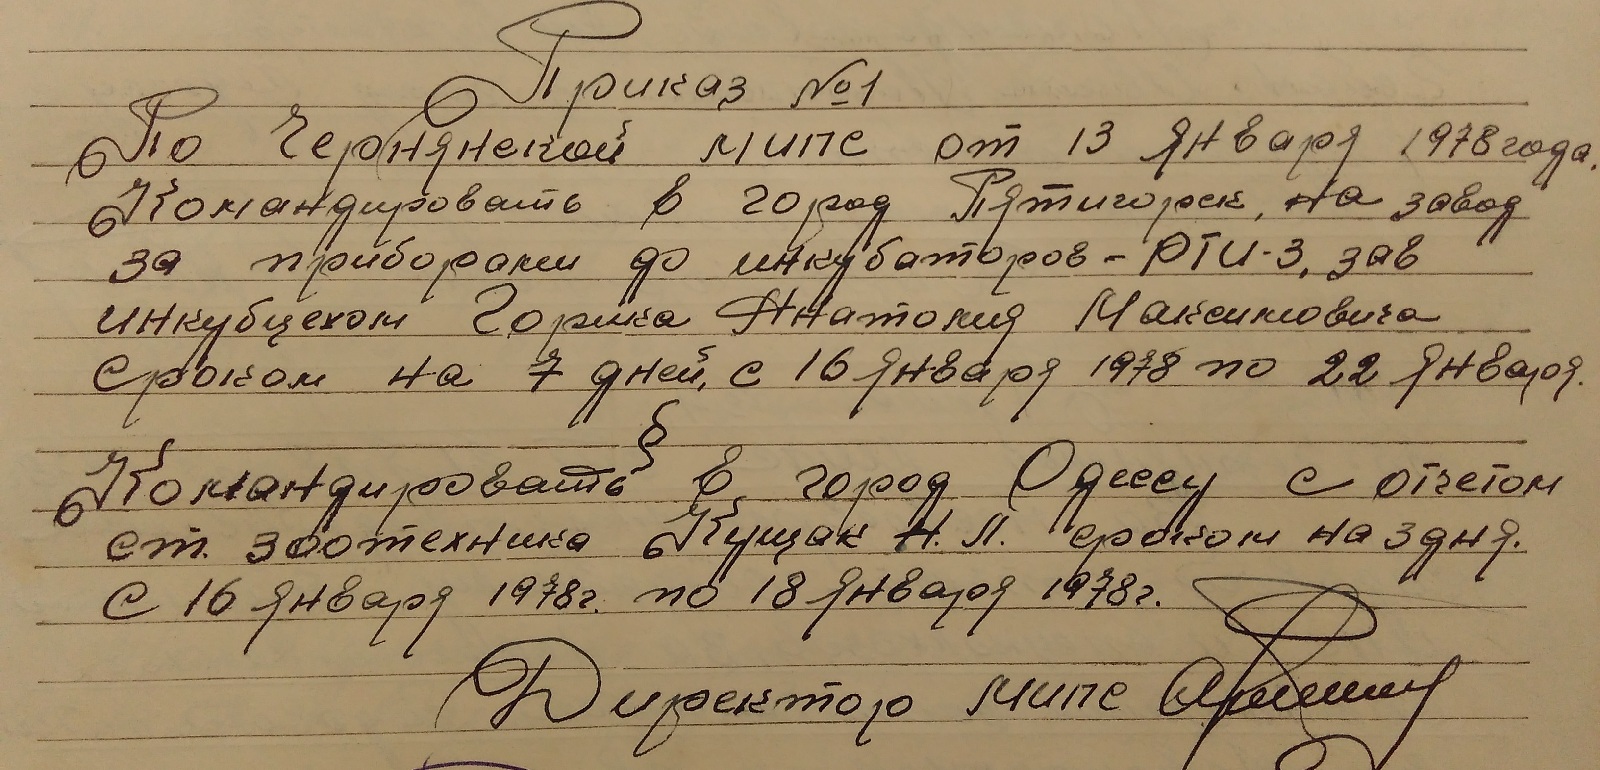 Приказ №1
По Чернянской МИПС от 13 января 1978 года.
Командировать в город Пятигорск, на завод
за приборами до инкубаторов - РТИ-3, зав
инкубцехом Горика Анатолия Максимовича
сроком на 7 дней, с 16 января 1978 по 22 января.
§
Командировать в город Одессу с отчетом
ст. зоотехника Кущак Н. Л. сроком на 3 дня.
С 16 января 1978г. по 18 января 1978г.
Директор МИПС